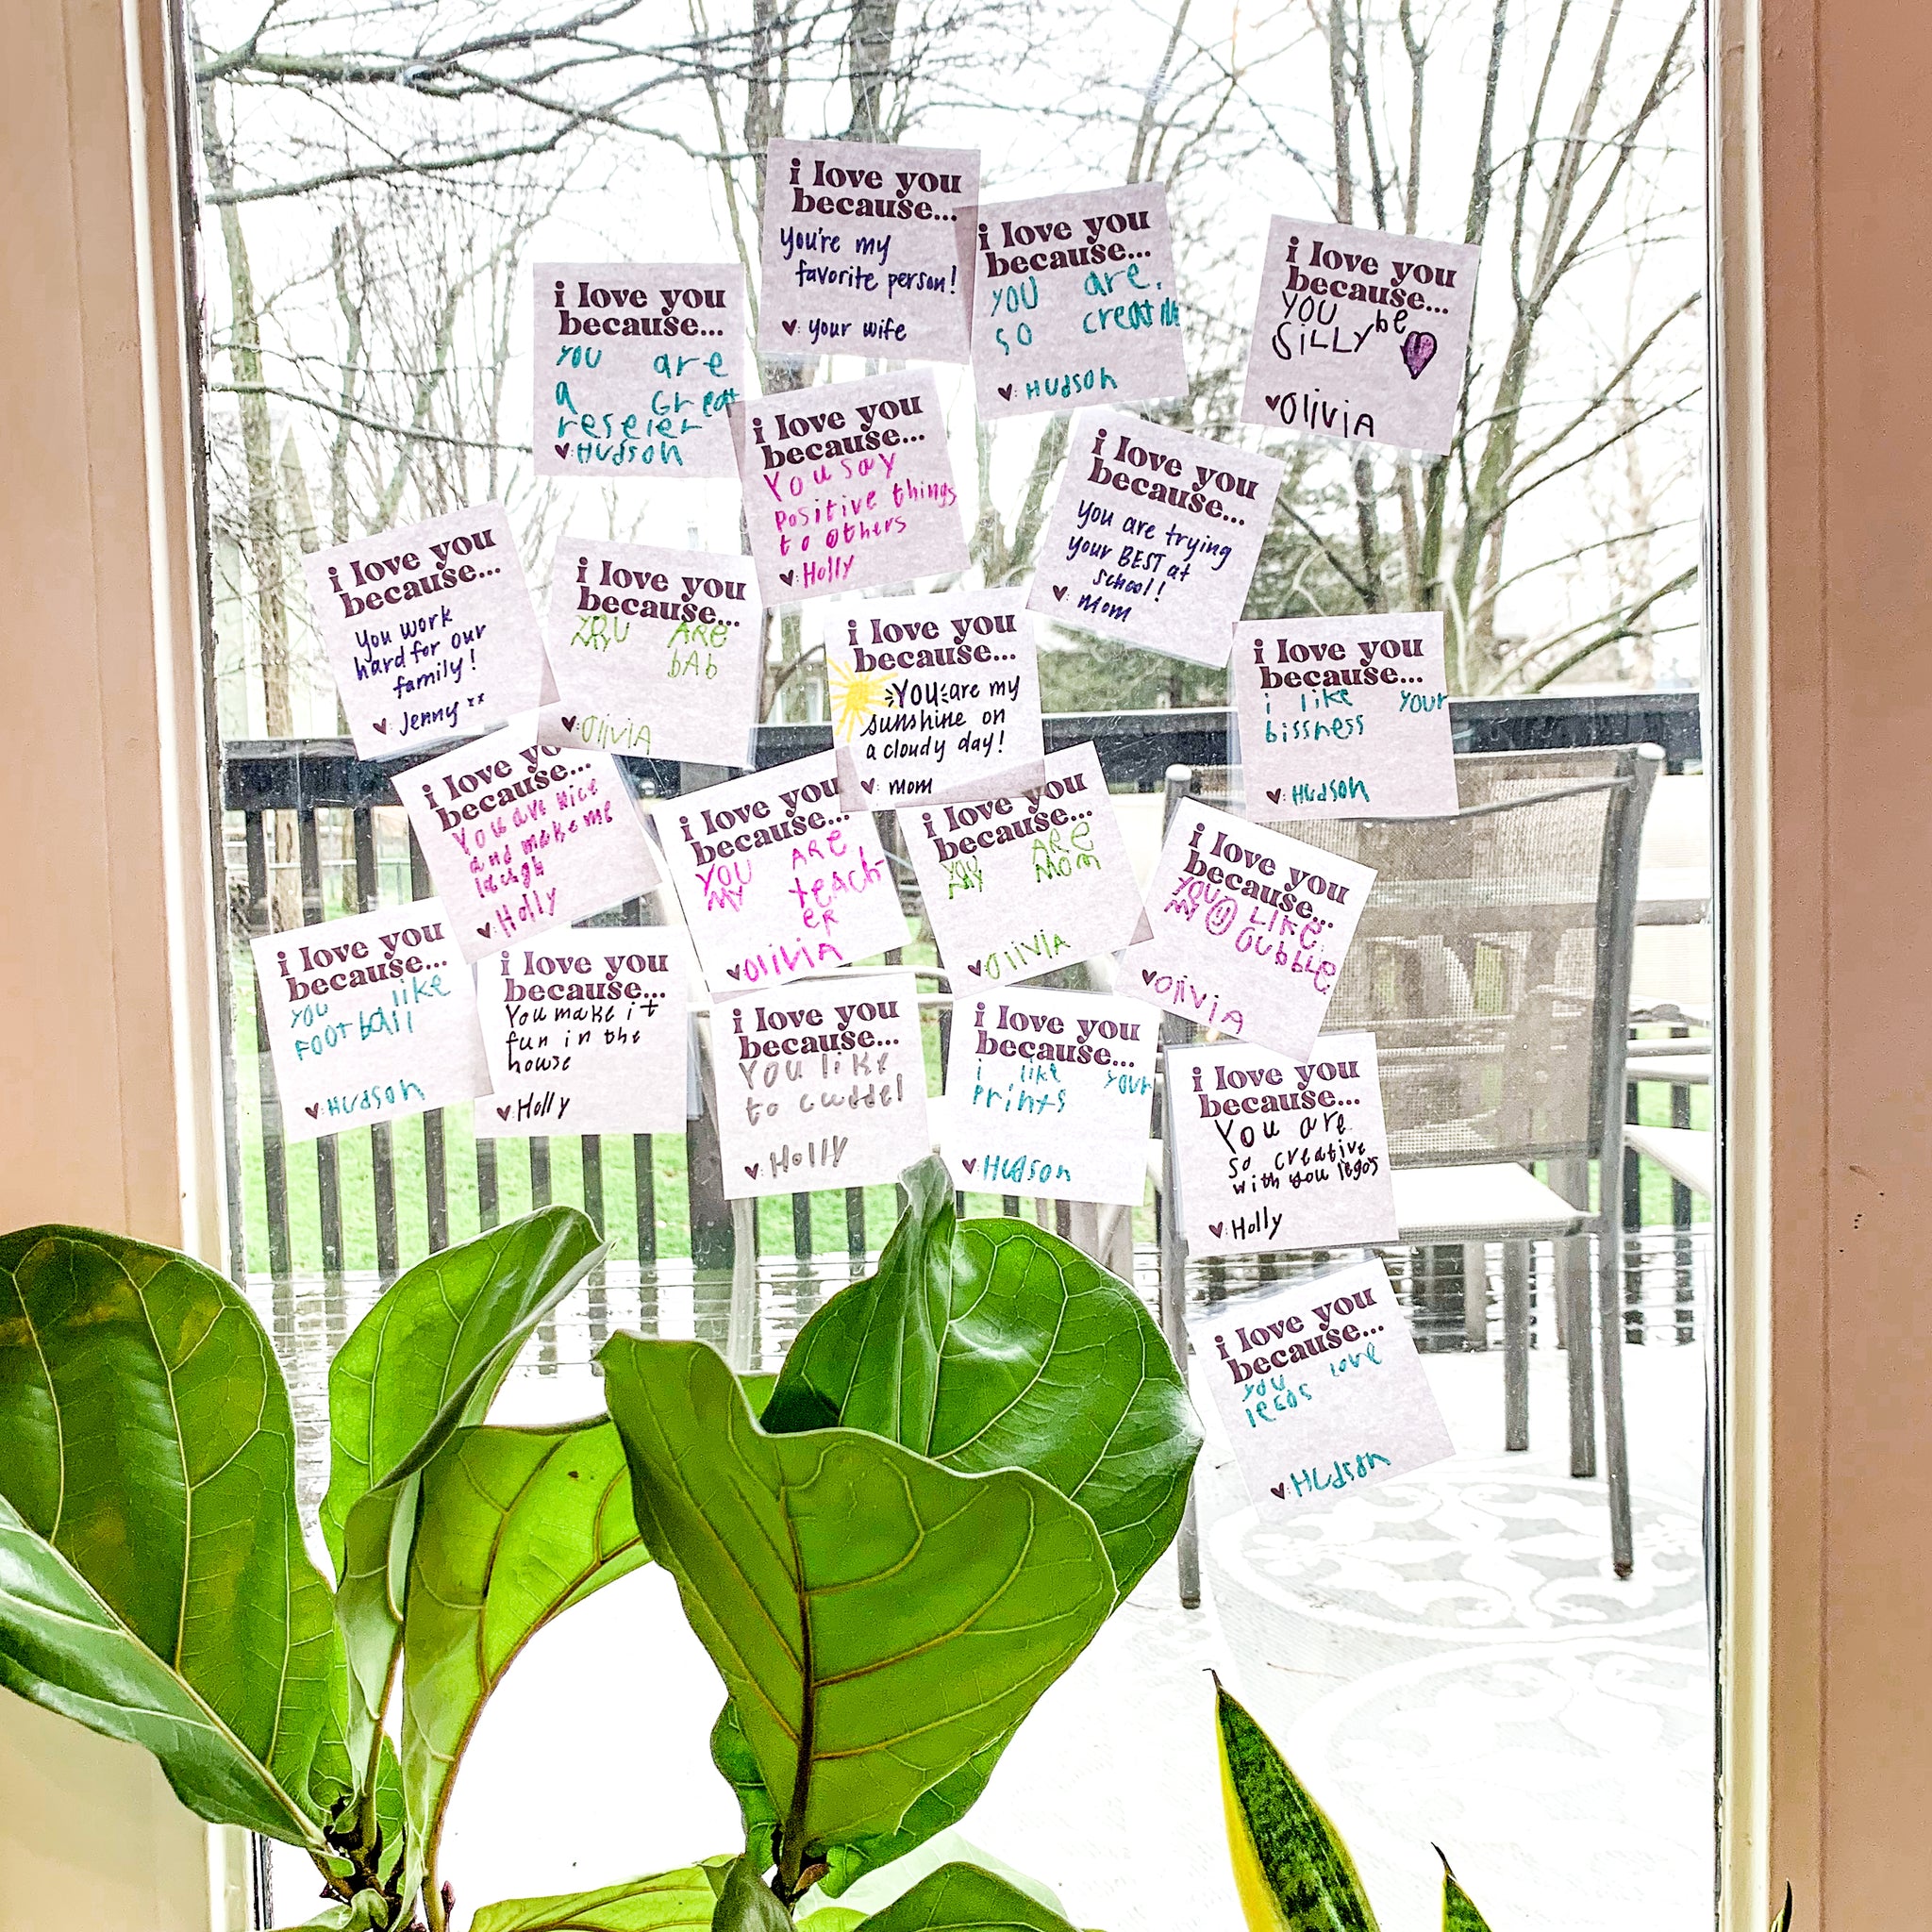 i love you
because...
you're my
favorite person!
♥: your wife
i love you
because...
YOU are
so creative
♥: Hudson
i love you
because...
YOU be
SiLLY
♥: OliviA
i love you
because...
you are
a Great
reseier
♥: Hudson
i love you
because...
You say
positive things
to others
♥: Holly
i love you
because...
you are trying
your BEST at
school!
♥: mom
i love you
because...
you work
hard for our
family!
♥: Jenny xx
i love you
because...
YOU ARe
bAb
♥: OliviA
i love you
because...
You are my
sunshine on
a cloudy day!
♥: mom
i love you
because...
i like your
bissness
♥: Hudson
i love you
because...
You are nice
and make me
laugh
♥: Holly
i love you
because...
YOU ARe
MY teach-
eR
♥: OliviA
i love you
because...
ARe
Mom
♥: OliviA
i love you
because...
YOU LIKe
MY
♥: OliviA
i love you
because...
you like
FOOtball
♥: Hudson
i love you
because...
You make it
fun in the
howse
♥: Holly
i love you
because...
You like
to cuddel
♥: Holly
i love you
because...
i like your
Prints
♥: Hudson
i love you
because...
You are
so creative
with you legos
♥: Holly
i love you
because...
you love
leGos
♥: Hudson